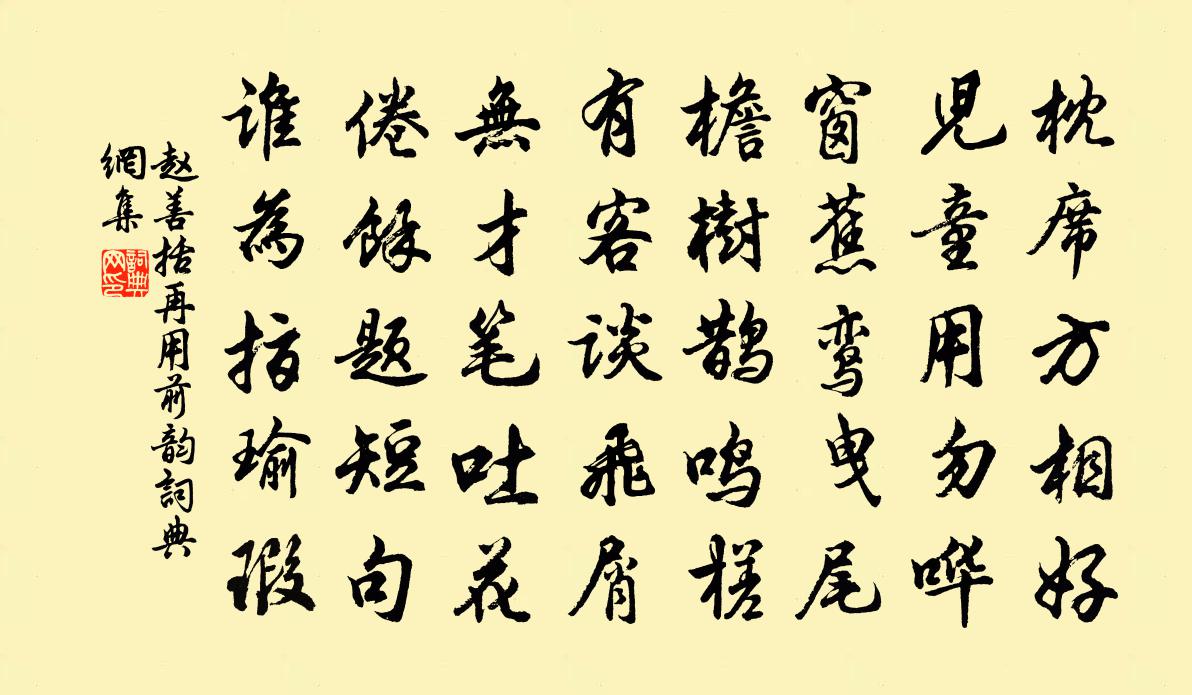 枕席方相好
児童用勿哗
窗蕉鸾曳尾
檐樹鹊鸣槎
有客谈飛屑
無才笔吐花
倦餘题短句
谁為指瑜瑕
赵善括再用前韵詞典
網集
詞典
网印